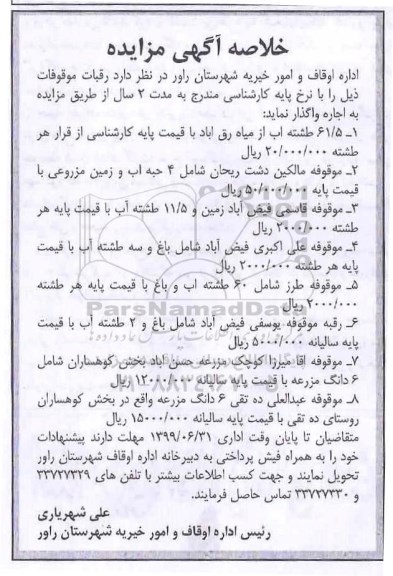 خلاصه آگهی مزایده
اداره اوقاف و امور خیریه شهرستان راور در نظر دارد رقبات موقوفات
ذیل را با نرخ پایه کارشناسی مندرج به مدت ۲ سال از طریق مزایده
به اجاره واگذار نماید:
۱ـ ۶۱/۵ طشته اب از میاه رق اباد با قیمت پایه کارشناسی از قرار هر
طشته ۲۰/۰۰۰/۰۰۰ ریال
۲ـ موقوفه مالکین دشت ریحان شامل ۴ حبه اب و زمین مزروعی با
قیمت پایه ۵۰/۰۰۰/۰۰۰ ریال
۳ـ موقوفه قاسمی فیض آباد زمین و ۱۱/۵ طشته آب با قیمت پایه هر
طشته ۲۰۰۰/۰۰۰ ریال
۴ـ موقوفه علی اکبری فیض آباد شامل باغ و سه طشته آب با قیمت
پایه هر طشته ۲۰۰۰/۰۰۰ ریال
۵ـ موقوفه طرز شامل ۶۰ طشته اب و باغ با قیمت پایه هر طشته
۲۰۰۰/۰۰۰ ریال
ParsNamadData
۶ـ رقبه موقوفه یوسفی فیض آباد شامل باغ و ۲ طشته آب با قیمت
پایه سالیانه ۵۰۰۰/۰۰۰ ریال
۷ـ موقوفه اقا میرزا کوچک مزرعه حسن آباد بخش کوهساران شامل
۶ دانگ مزرعه با قیمت پایه سالیانه ۱۲۰۰۰/۰۰۰ ریال
۸ـ موقوفه عبدالعلی ده تقی ۶ دانگ مزرعه واقع در بخش کوهساران
روستای ده تقی با قیمت پایه سالیانه ۱۵۰۰۰/۰۰۰ ریال
متقاضیان تا پایان وقت اداری ۱۳۹۹/۰۶/۳۱ مهلت دارند پیشنهادات
خود را به همراه فیش پرداختی به دبیرخانه اداره اوقاف شهرستان راور
تحویل نمایند و جهت کسب اطلاعات بیشتر با تلفن های ۳۳۷۲۷۳۲۹
و ۳۳۷۲۷۳۳۰ تماس حاصل فرمایند.
علی شهریاری
رئیس اداره اوقاف و امور خیریه شهرستان راور